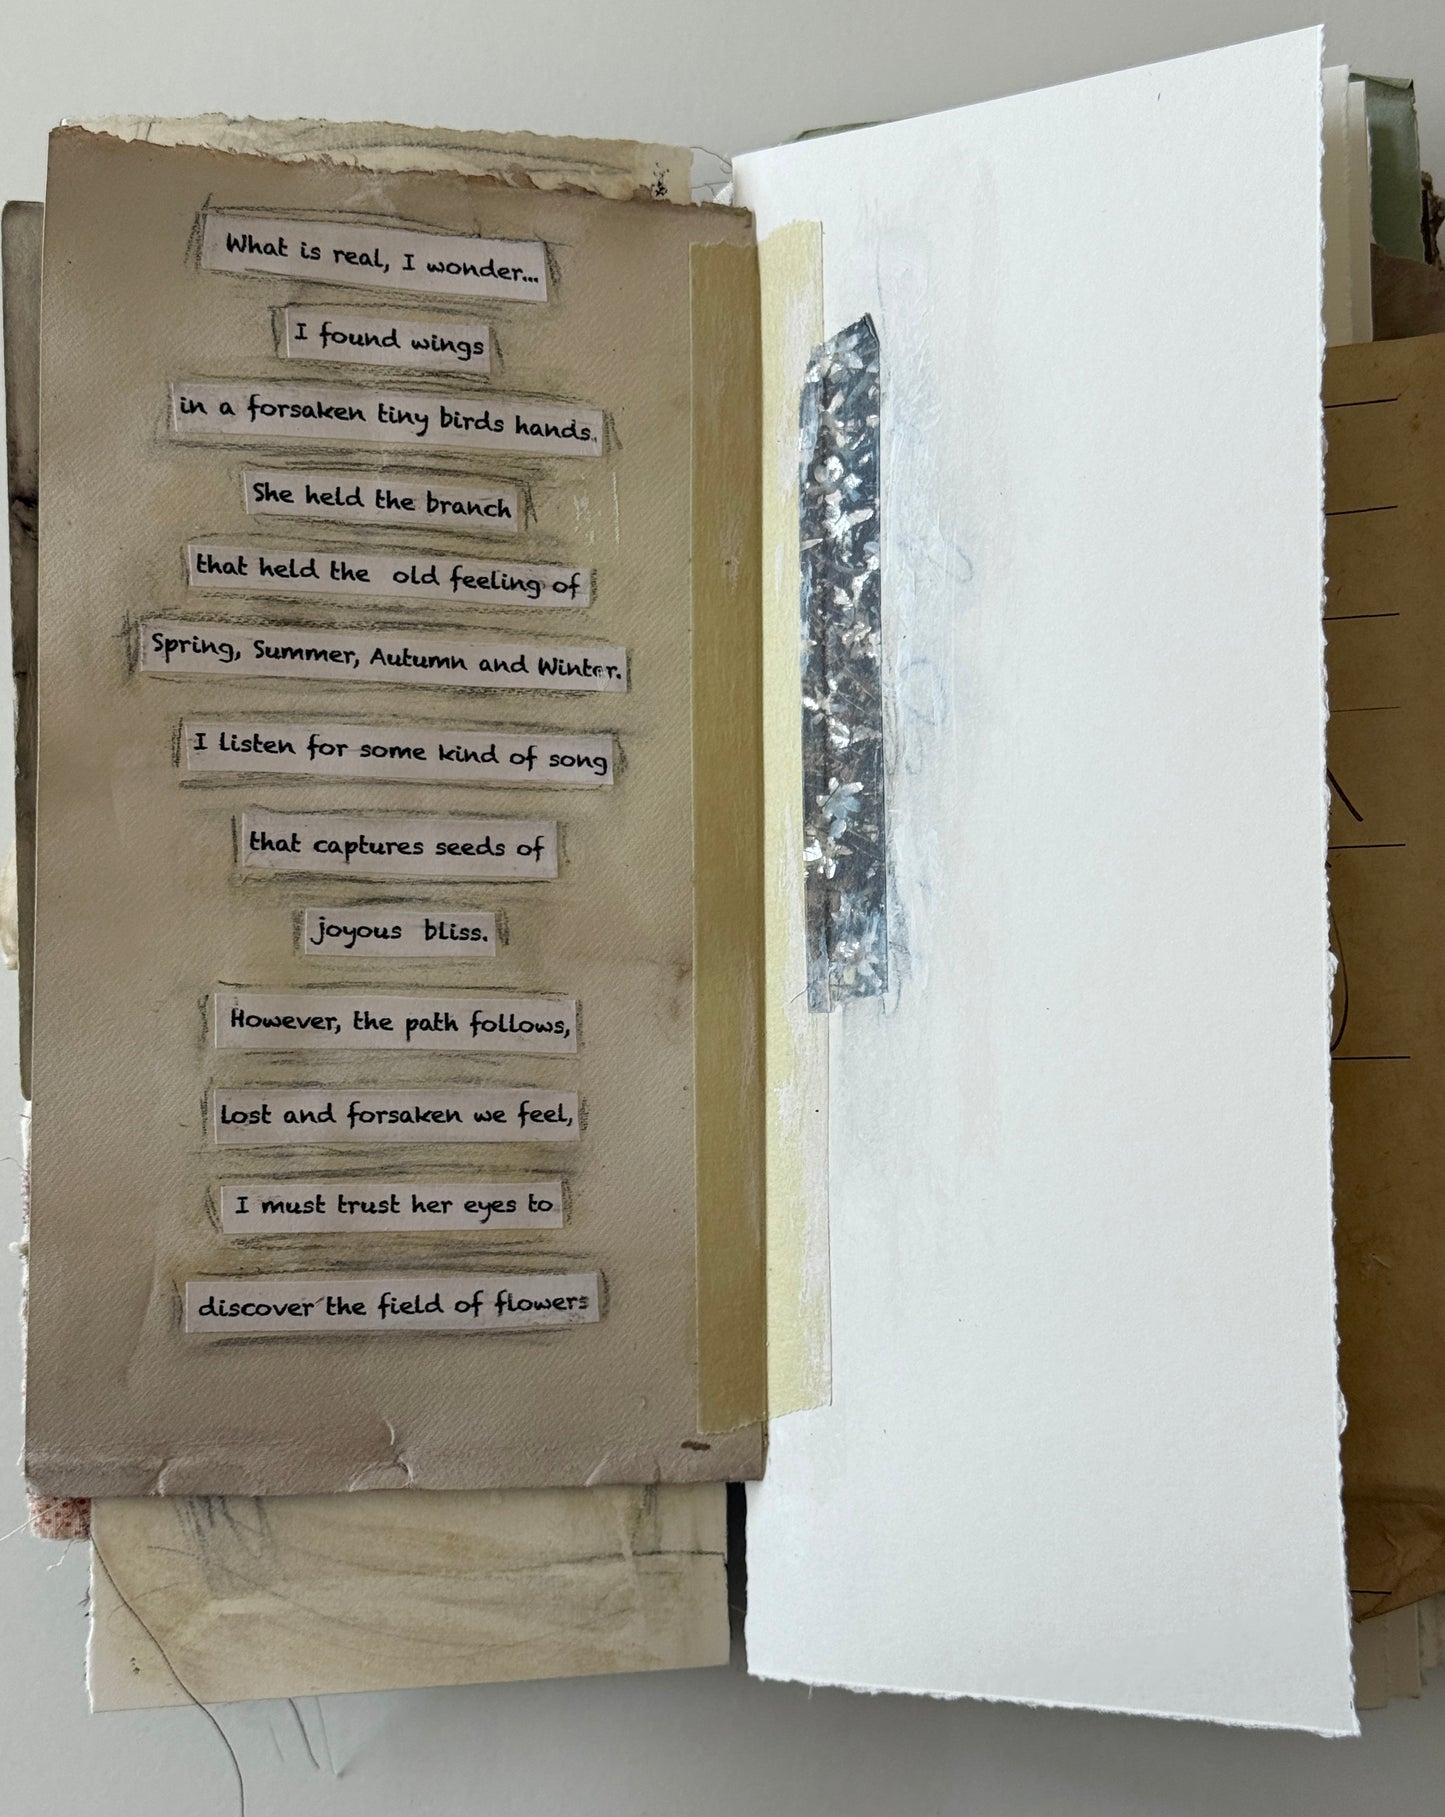 What is real, I wonder...
I found wings
in a forsaken tiny birds hands.
She held the branch
that held the old feeling of
Spring, Summer, Autumn and Winter.
I listen for some kind of song
that captures seeds of
joyous bliss.
However, the path follows,
lost and forsaken we feel,
I must trust her eyes to
discover the field of flowers